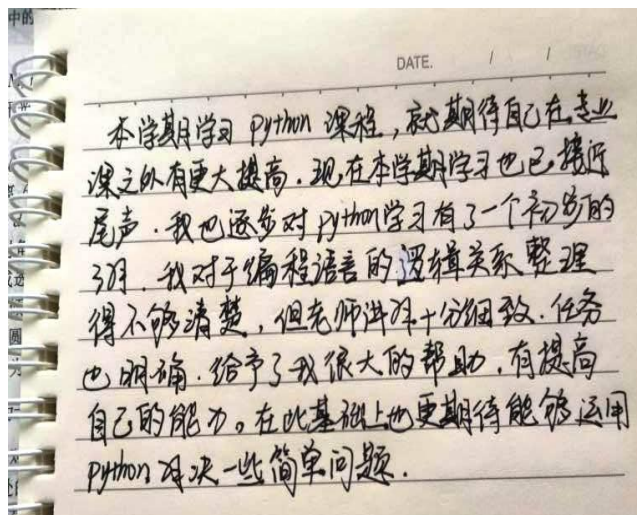 中的
DATE. / /
本学期学习 python 课程，就期待自己在专业
课之外有更大提高．现在本学期学习也已接近
尾声．我也逐步对python学习有了一个初步的
了解．我对于编程语言的逻辑关系整理
得不够清楚，但老师讲解十分细致．任务
也明确．给予了我很大的帮助，有提高
自己的能力。在此基础上也更期待能够运用
python解决一些简单问题．
圆